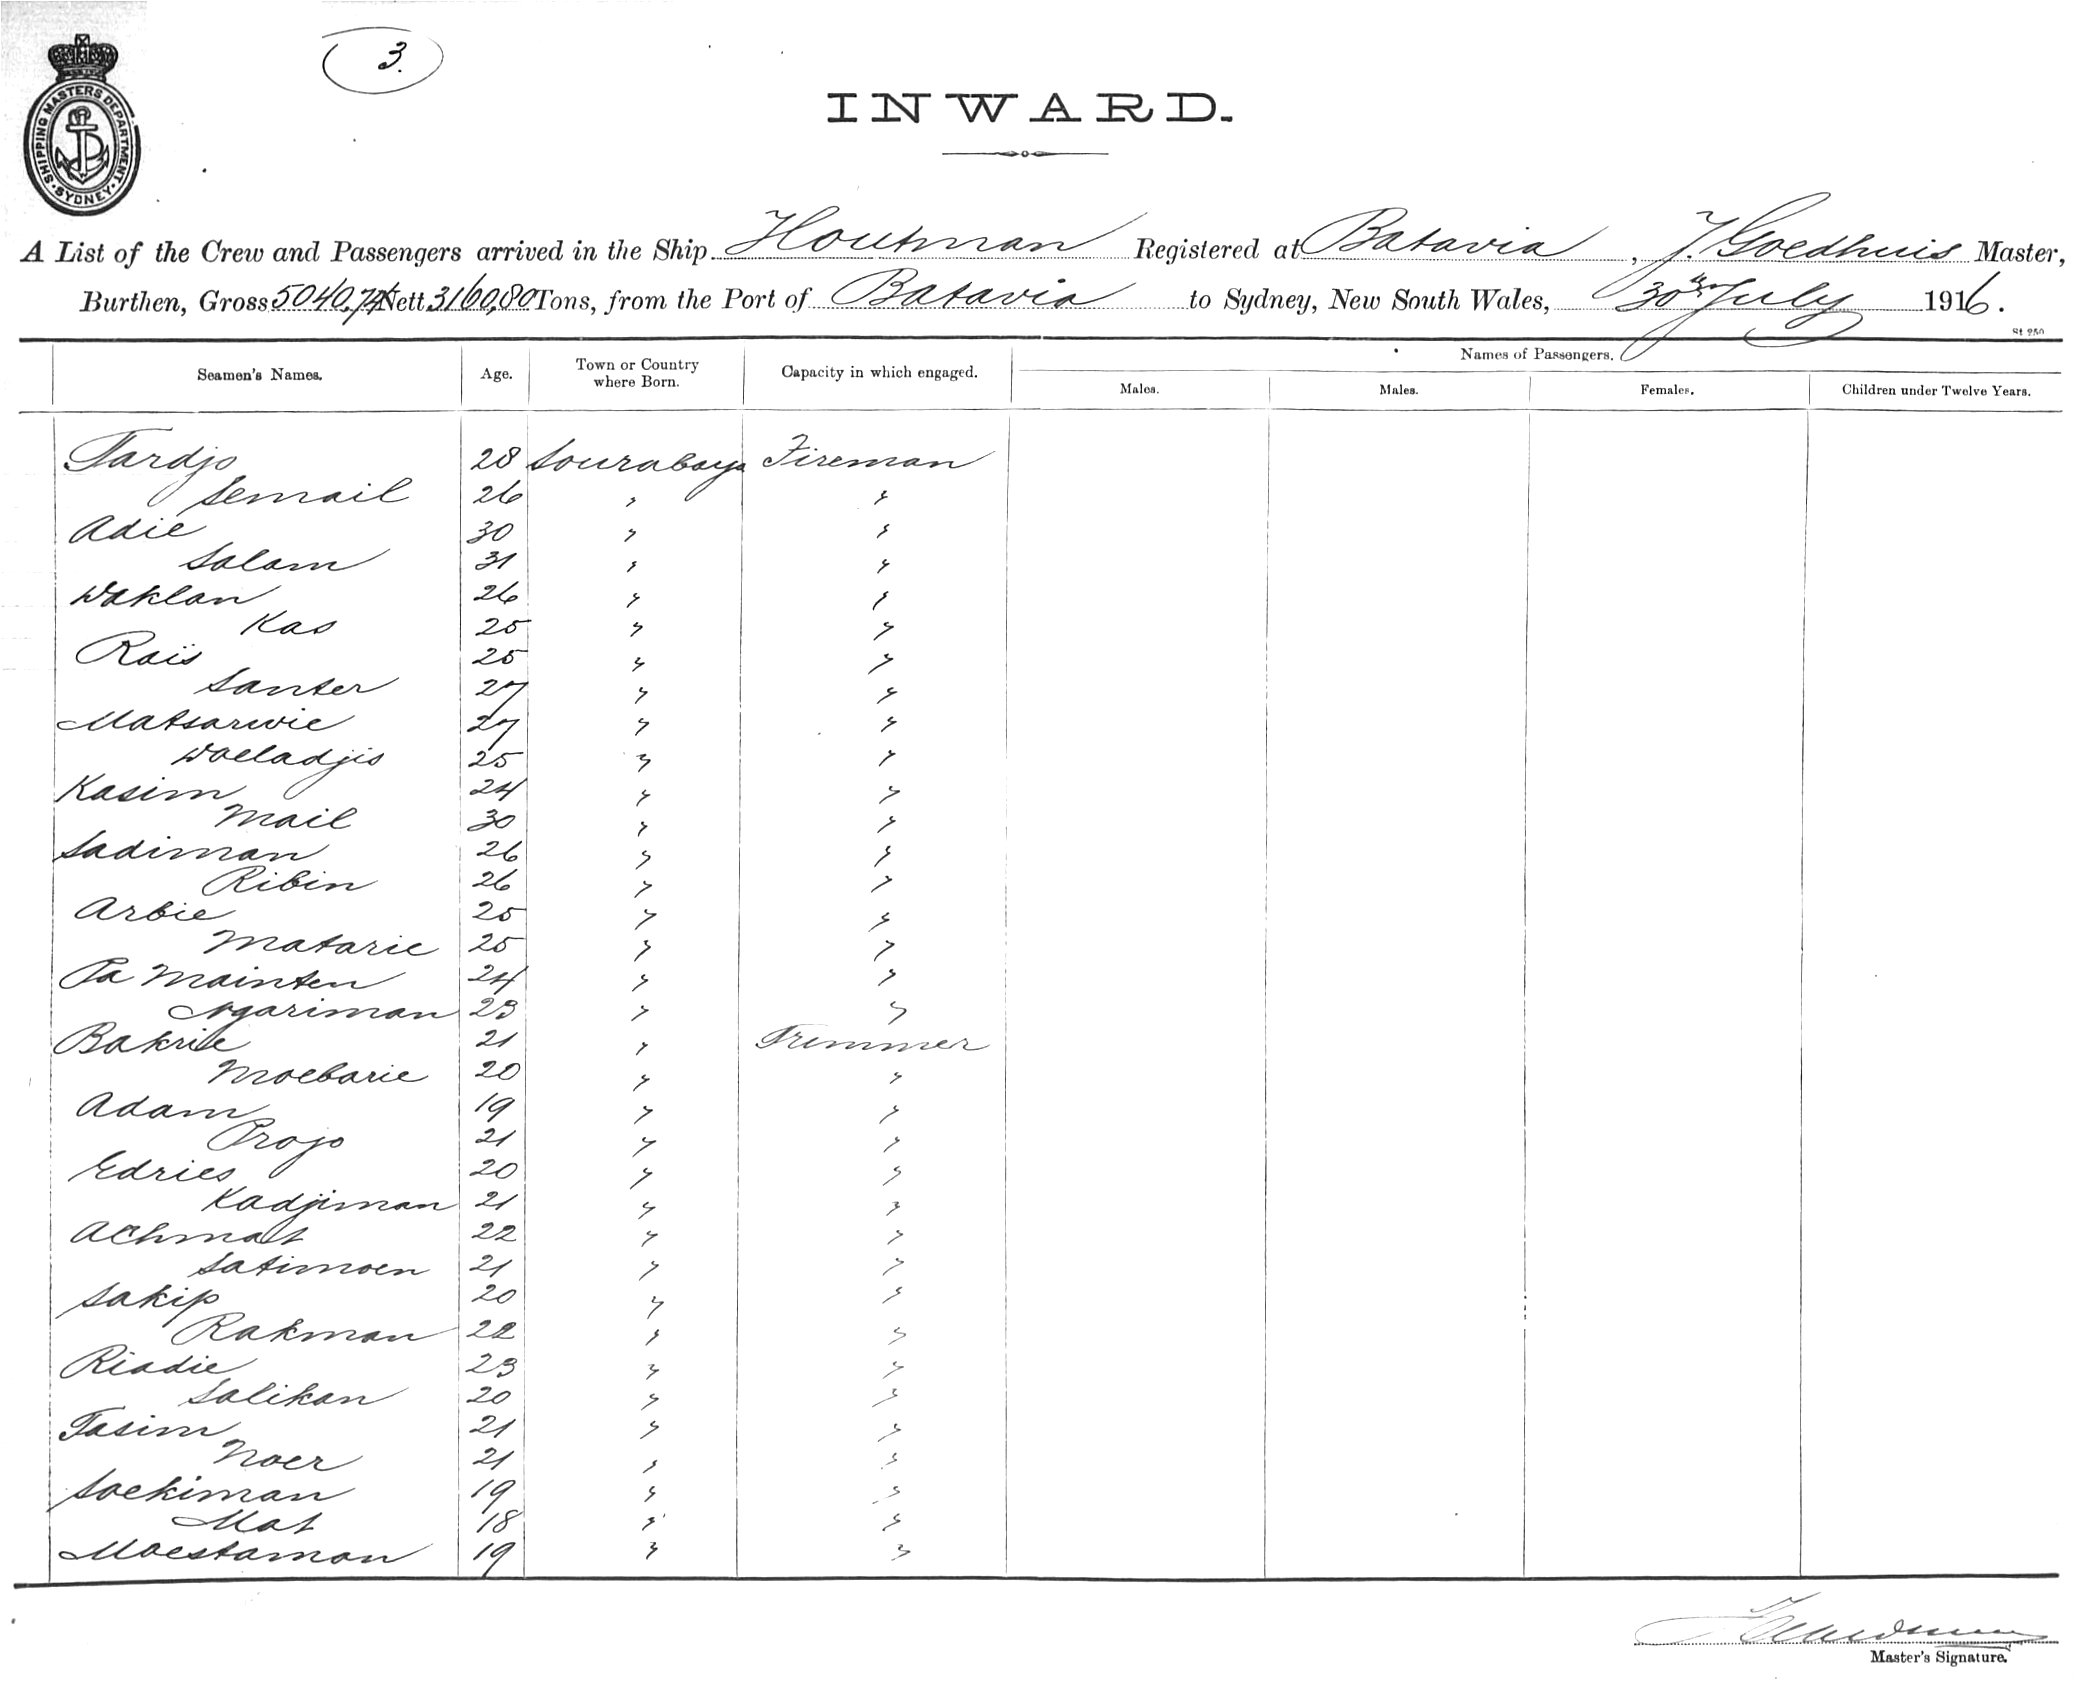 3.
SHIPPING MASTERS DEPARTMENT
SYDNEY
INWARD.
A List of the Crew and Passengers arrived in the Ship Houtman Registered at Batavia, J. Goedhuis Master,
Burthen, Gross 5040,74 Nett 3160,80 Tons, from the Port of Batavia to Sydney, New South Wales, 30th July 1916.
St 250
Names of Passengers.
Seamen's Names. Age. Town or Country where Born. Capacity in which engaged. Males. Males. Females. Children under Twelve Years.
Tardjo 28 Sourabaya Fireman
Semail 26 " "
Adie 30 " "
Salam 31 " "
Waklan 26 " "
Kas 25 " "
Raïs 25 " "
Santer 27 " "
Matsarwie 27 " "
Woeladjis 25 " "
Kasim 24 " "
Mail 30 " "
Sadiman 26 " "
Ribin 26 " "
Arbie 25 " "
Matarie 25 " "
Pa Mainten 24 " "
Ngariman 23 " "
Bakrie 21 " Trimmer
Moebarie 20 " "
Adam 19 " "
Projo 21 " "
Edries 20 " "
Kadjiman 21 " "
Achmat 22 " "
Satimoen 21 " "
Sakip 20 " "
Rakman 22 " "
Riadie 23 " "
Salikan 20 " "
Tasim 21 " "
Noer 21 " "
Soekiman 19 " "
Mat 18 " "
Moestaman 19 " "
Master's Signature.